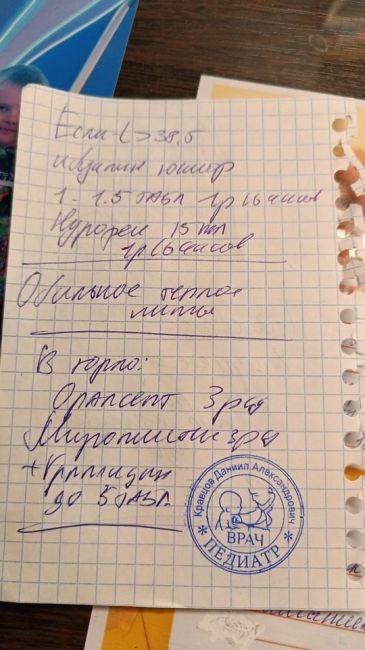 Если t > 38,5
Ибуклин юниор
1-1.5 табл 1р (6 часов
Нурофен 15 мл
1р (6 часов
Обильное теплое
питье
В горло:
Орасепт 3 р/д
Мирамистин 3 р/д
+ Граммидин
до 5 табл.
Кравцов Даниил Александрович
ВРАЧ
* ПЕДИАТР *